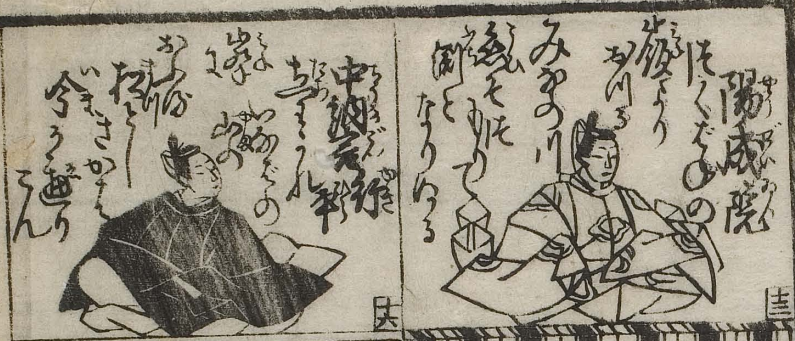 陽成院
つくばねの
嶺より
おつる
みなの川
恋そつもりて
淵と
なりぬる
十三
中納言行平
立わかれ
いなばの
山の
峯に
おふる
松とし
きかば
今かへり
こん
十六